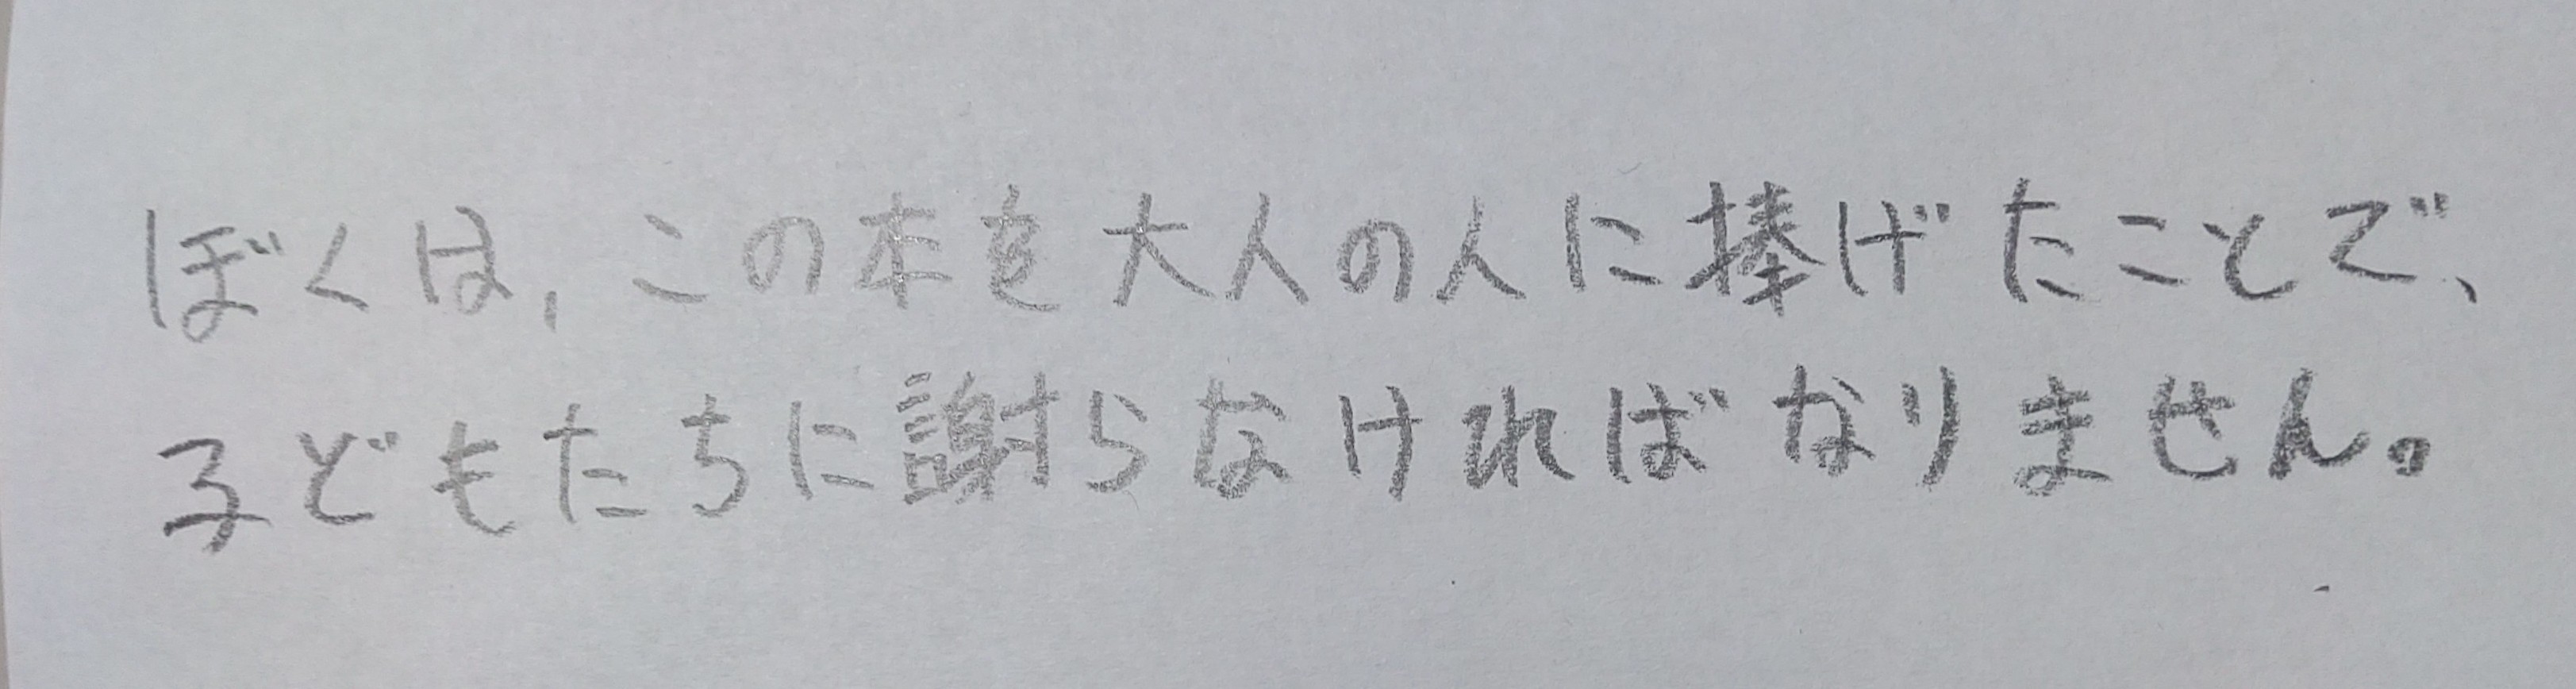 ぼくは、この本を大人の人に捧げたことで、
子どもたちに謝らなければなりません。